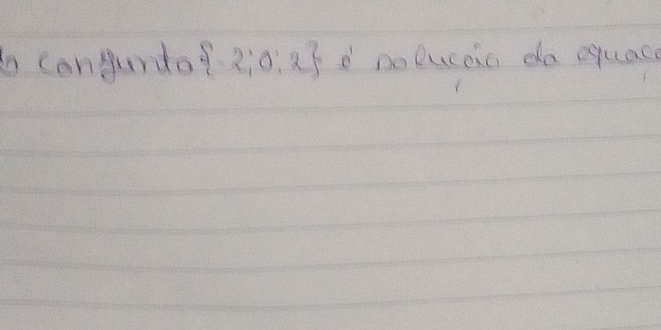 conjunto {-2; 0; 2} é solução da equaçã